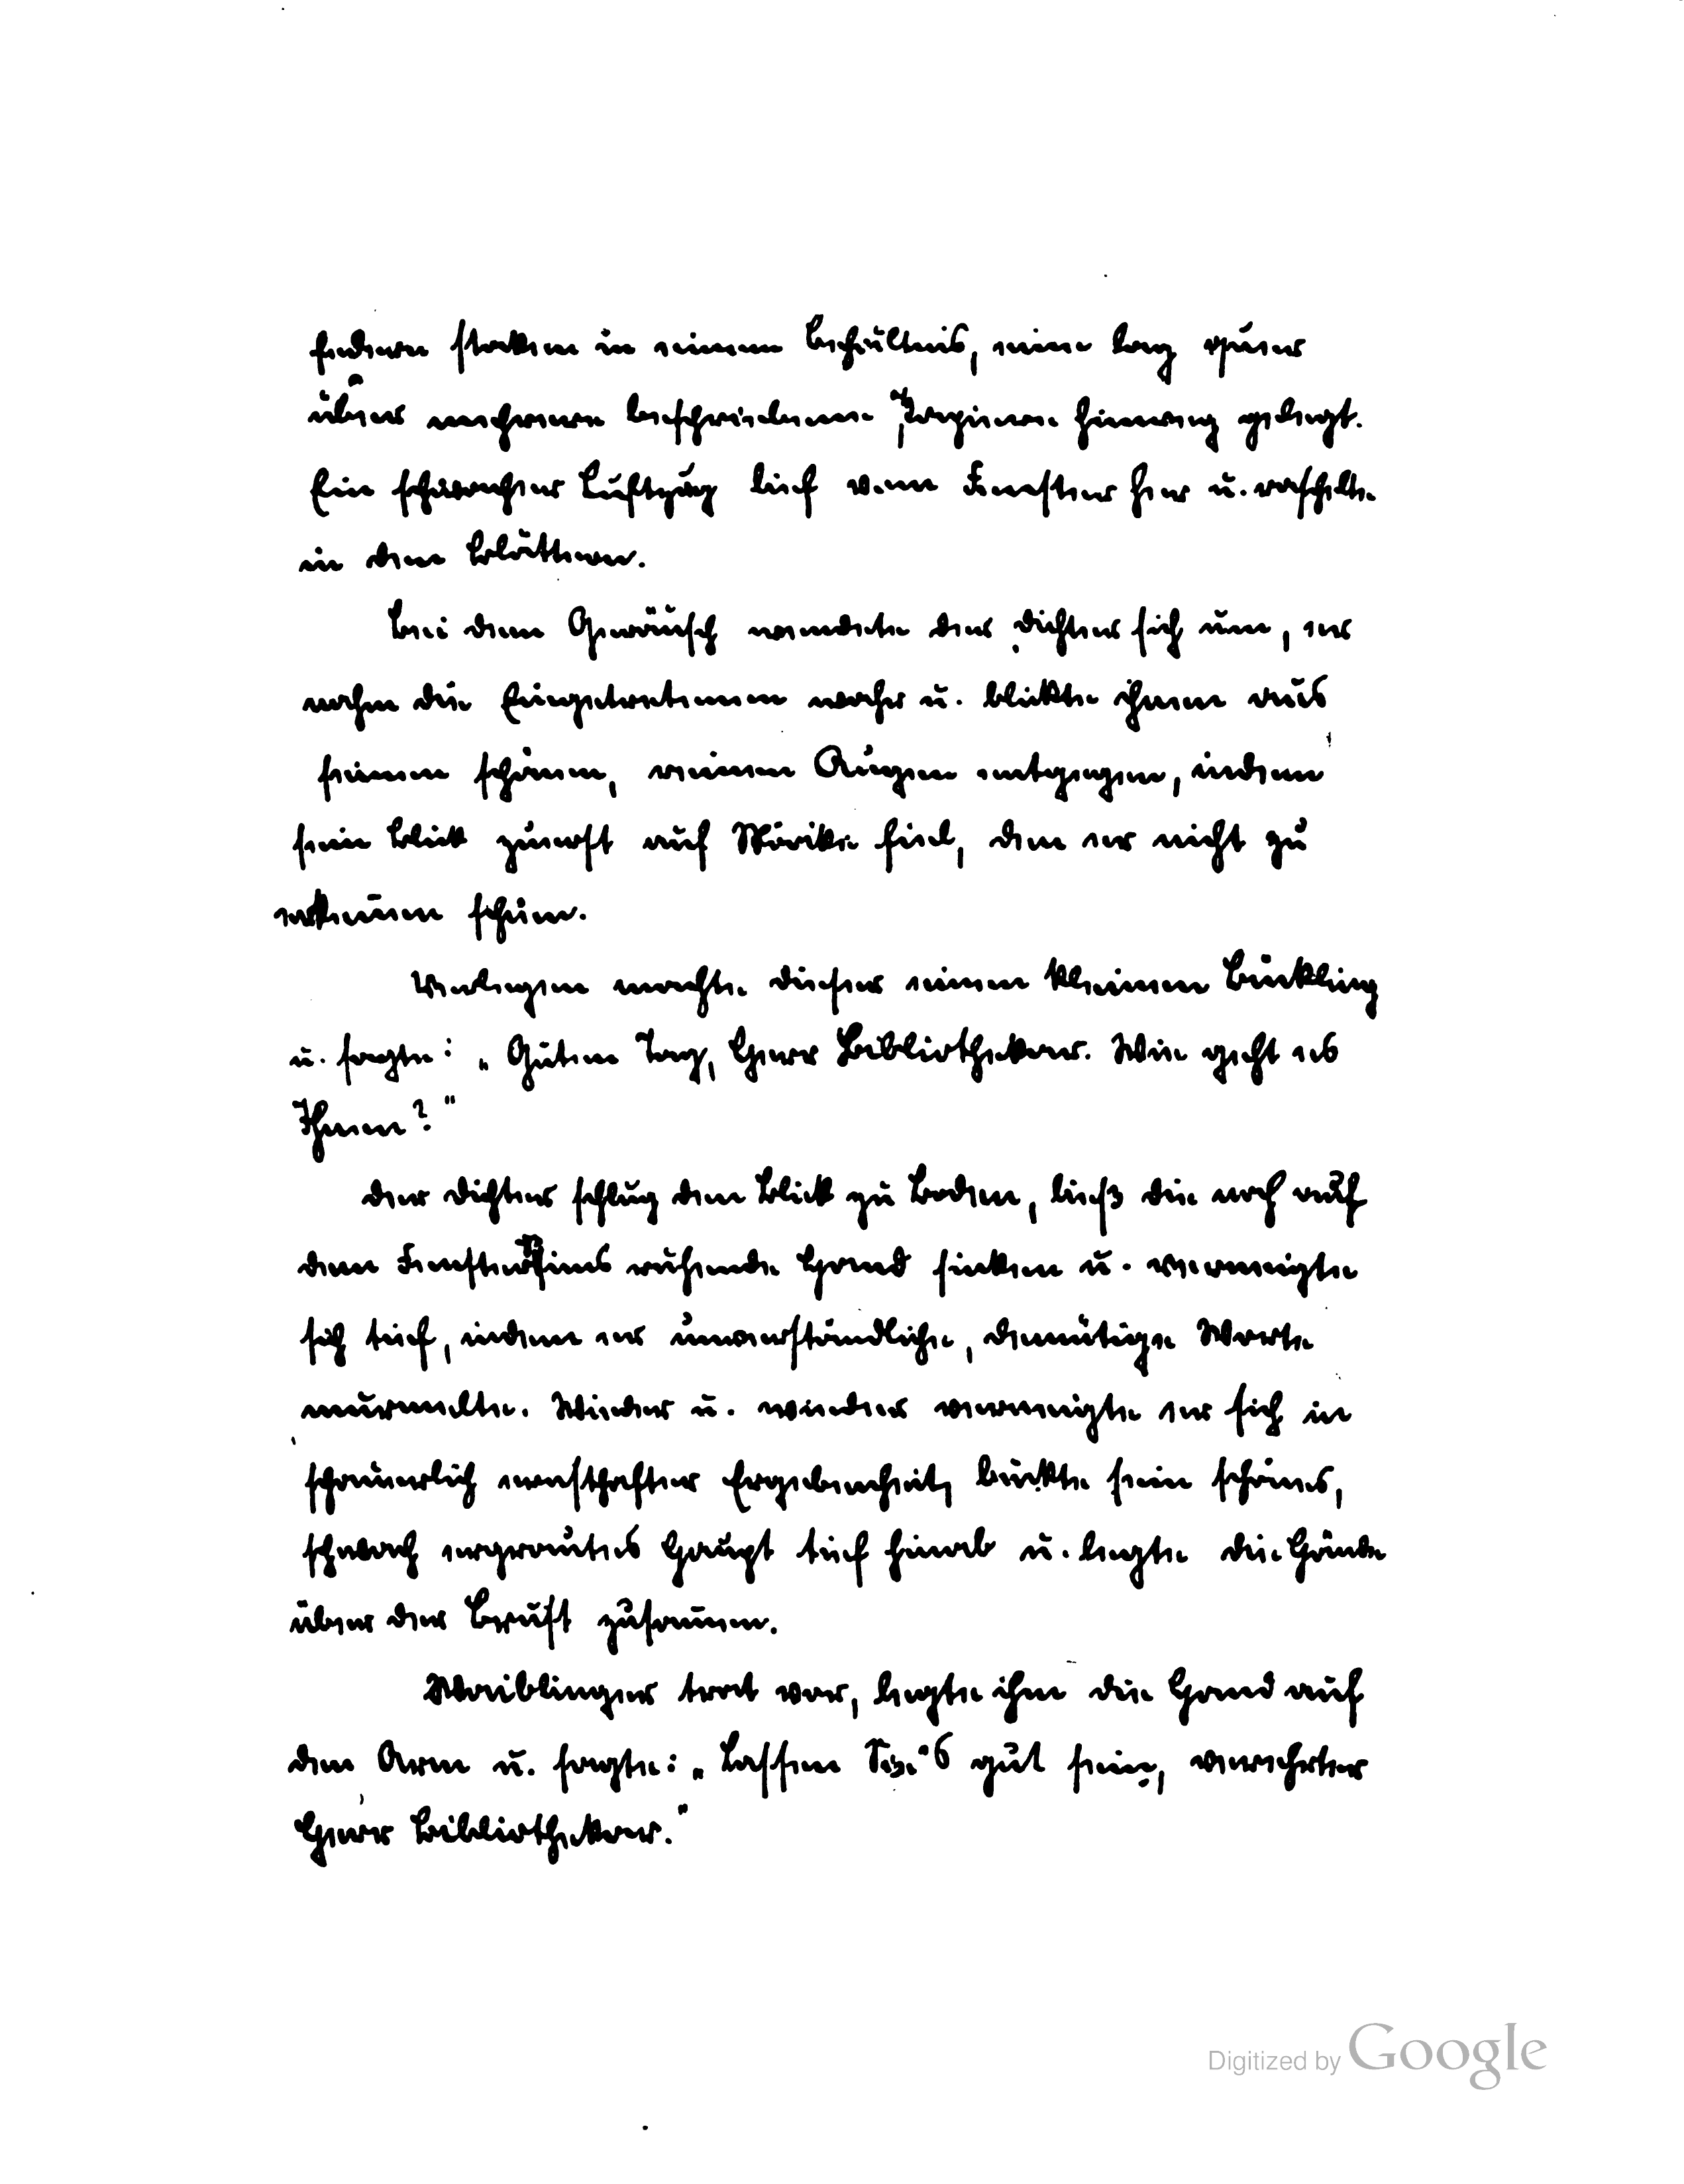 Federn staken in einem Behältnis, eine lag quer
über mehrere beschriebene Papiere hinweg gelegt.
Ein schwacher Luftzug lief vom Fenster her u. raschelte
in den Blättern.
Bei dem Geräusch wendete der Dichter sich um, er
nahm die Eingetretenen wahr u. blickte ihnen aus
seinen schönen, reinen Augen entgegen, indem
sein Blick zuerst auf Mörike fiel, den er nicht zu
erkennen schien.
Verlegen machte dieser einen kleinen Bückling
u. sagte: „Guten Tag, Herr Bibliothekar. Wie geht es
Ihnen?"
Der Dichter schlug den Blick zu Boden, ließ die noch auf
dem Fenstersims ruhende Hand sinken u. verneigte
sich tief, indem er unverständliche, demütige Worte
murmelte. Wieder u. wieder verneigte er sich in
schauerlich ernsthafter Ergebenheit, bückte sein schönes,
schwach ergrautes Haupt tief hinab u. legte die Hände
über der Brust zusammen.
Waiblinger trat vor, legte ihm die Hand auf
den Arm u. sagte: „Lassen Sie's gut sein, verehrter
Herr Bibliothekar."
Digitized by Google